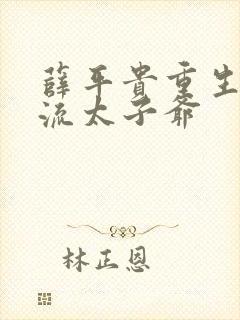 薛平貴重生
流太子爺
林正恩